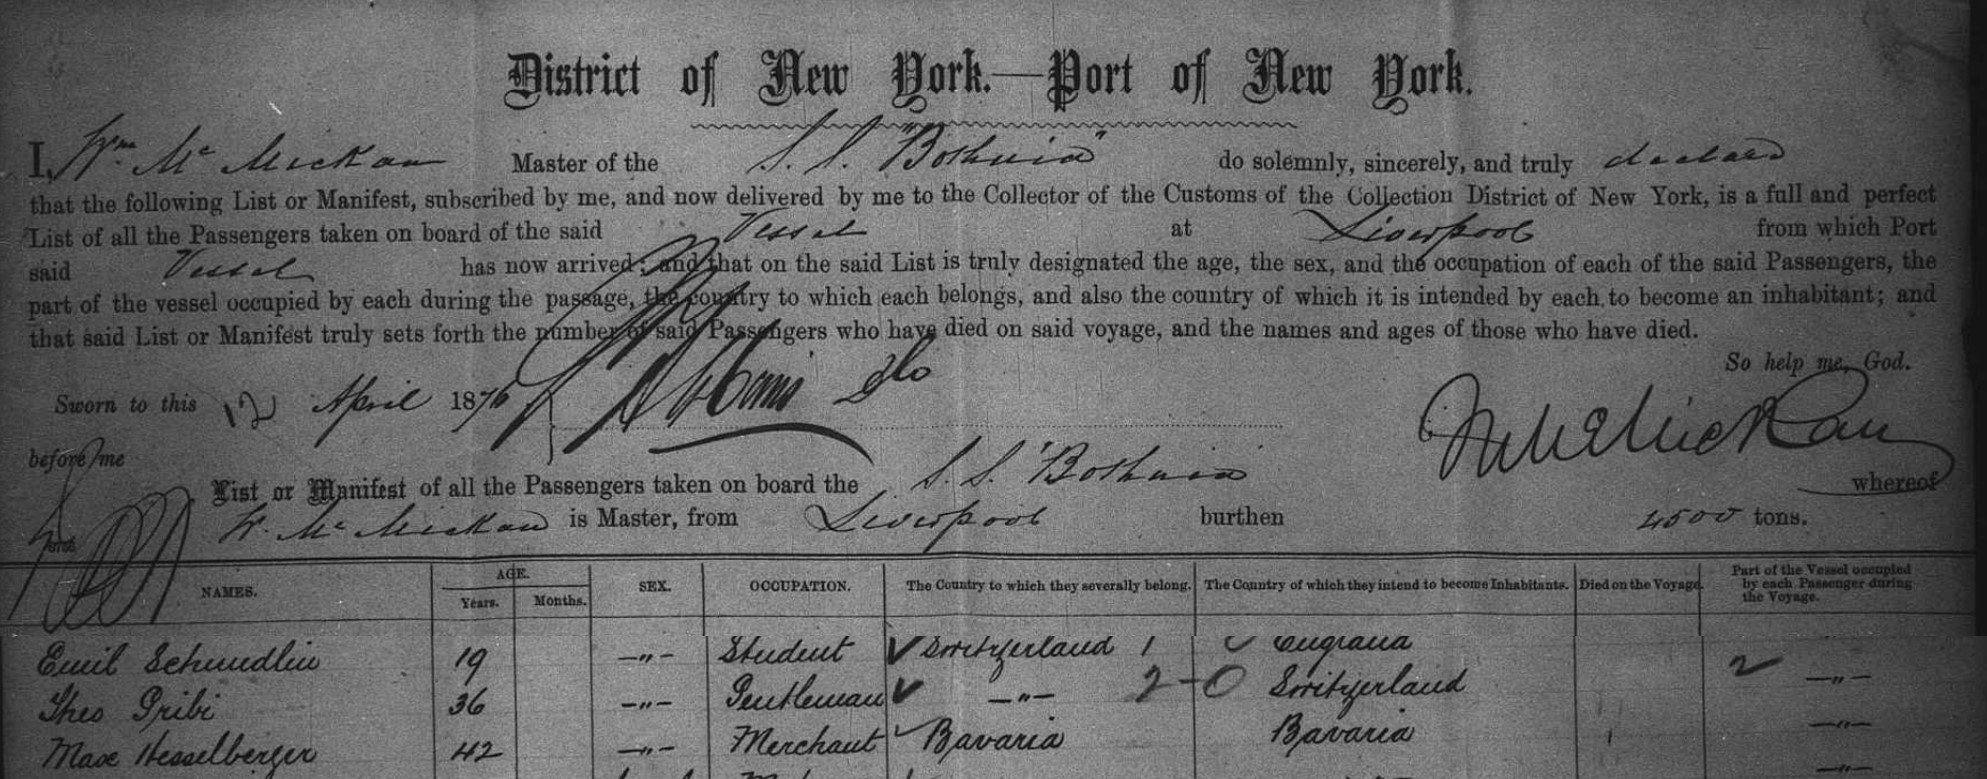 District of New York.—Port of New York.
I, Wm McMickan Master of the S. S. "Bothnia" do solemnly, sincerely, and truly declare
that the following List or Manifest, subscribed by me, and now delivered by me to the Collector of the Customs of the Collection District of New York, is a full and perfect
List of all the Passengers taken on board of the said Vessel at Liverpool from which Port
said Vessel has now arrived; and that on the said List is truly designated the age, the sex, and the occupation of each of the said Passengers, the
part of the vessel occupied by each during the passage, the country to which each belongs, and also the country of which it is intended by each to become an inhabitant; and
that said List or Manifest truly sets forth the number of said Passengers who have died on said voyage, and the names and ages of those who have died.
So help me, God.
Sworn to this 12 April 1876
McMickan
before me
List or Manifest of all the Passengers taken on board the S. S. "Bothnia" whereof
W. McMickan is Master, from Liverpool burthen 4500 tons.
NAMES. AGE. Years. Months. SEX. OCCUPATION. The Country to which they severally belong. The Country of which they intend to become Inhabitants. Died on the Voyage. Part of the Vessel occupied by each Passenger during the Voyage.
Emil Schundlin 19 -"- Student Switzerland 1 England 2 -"-
Theo Gribi 36 -"- Gentleman -"- 2-0 Switzerland -"-
Max Hesselberger 42 -"- Merchant Bavaria Bavaria -"-